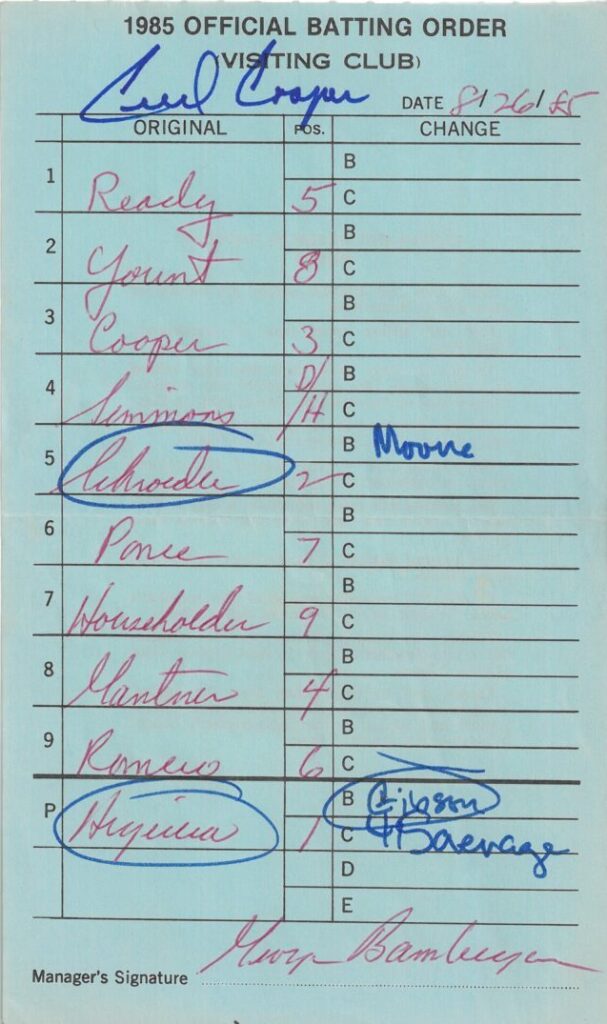 1985 OFFICIAL BATTING ORDER
(VISITING CLUB)
Cecil Cooper
DATE 8/26/85
ORIGINAL POS. CHANGE
1 Ready 5 B
C
2 Yount 8 B
C
3 Cooper 3 B
C
4 Simmons D/H B
C
5 Schroeder 2 B Moore
C
6 Ponce 7 B
C
7 Householder 9 B
C
8 Gantner 4 B
C
9 Romero 6 B
C
P Higuera 1 B Gibson
C Searage
D
E
Manager's Signature George Bamberger